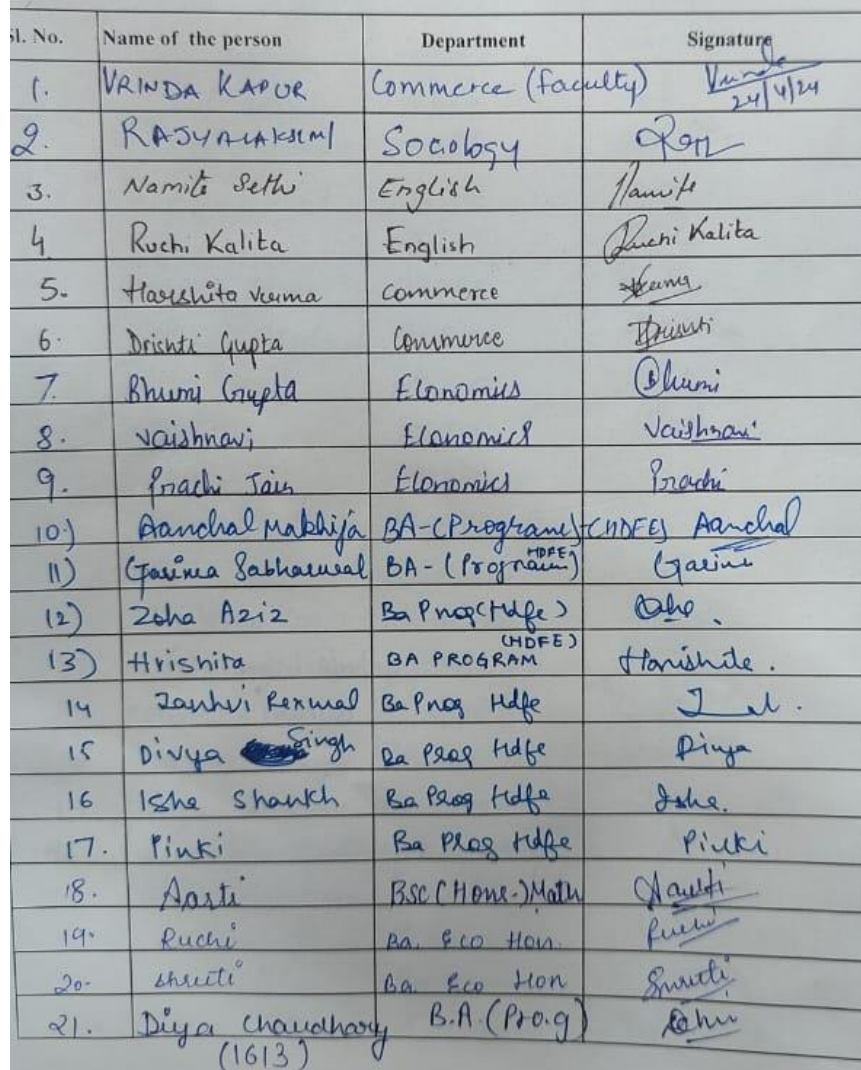 Sl. No. Name of the person Department Signature
1. VRINDA KAPUR Commerce (faculty)
24/4/24
2. RAJYALAKSHMI Sociology
3. Namita Sethi English Namita
4 Ruchi Kalita English Ruchi Kalita
5. Harshita Verma Commerce Verma
6. Drishti Gupta Commerce Drishti
7. Bhumi Gupta Economics Bhumi
8. Vaishnavi Economics Vaishnavi
9. Prachi Jain Economics Prachi
10) Aanchal Makhija BA-(Program)-(HDFE) Aanchal
11) Garima Sabharwal BA-(Program) (HDFE) Garima
12) Zoha Aziz Ba Prog (Hdfe)
13) Hrishita BA PROGRAM (HDFE)
14 Ba Prog Hdfe
15 Divya Singh Ba Prog Hdfe Divya
16 Isha Ba Prog Hdfe Isha.
17. Pinki Ba Prog Hdfe Pinki
18. Aarti BSC (Hons.) Math Aarti
19. Ruchi Ba. Eco Hon. Ruchi
20. Shruti Ba. Eco Hon Shruti
21. Diya Chaudhary B.A. (Pro.g)
(1613)